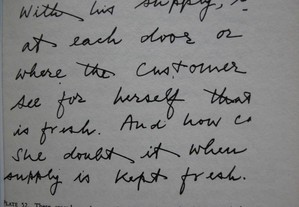 With his supply, 
at each door or
where the customer
see for herself that
is fresh. And how c
she doubt it when
supply is kept fresh.
PLATE 52.